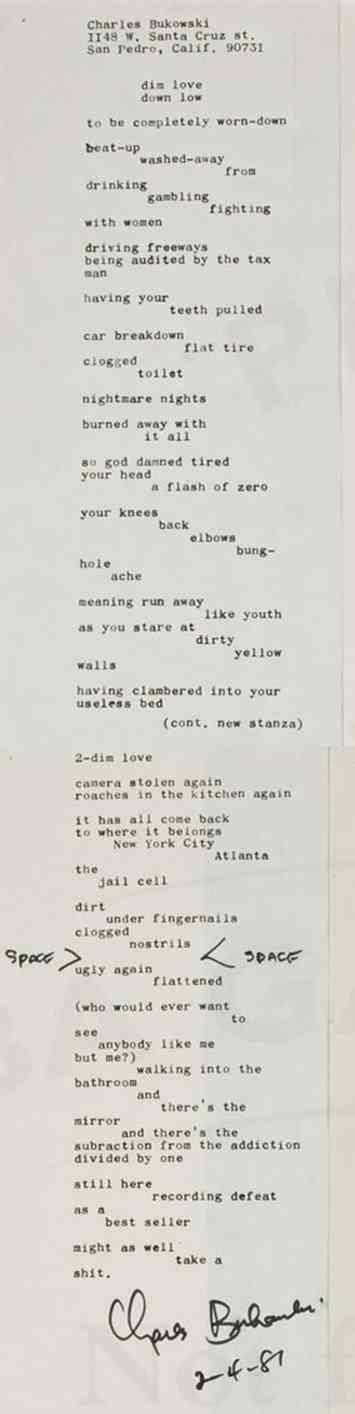 Charles Bukowski
1148 W. Santa Cruz st.
San Pedro, Calif. 90731
dim love
down low
to be completely worn-down
beat-up
washed-away
from
drinking
gambling
fighting
with women
driving freeways
being audited by the tax
man
having your
teeth pulled
car breakdown
flat tire
clogged
toilet
nightmare nights
burned away with
it all
so god damned tired
your head
a flash of zero
your knees
back
elbows
bung-
hole
ache
meaning run away
like youth
as you stare at
dirty
yellow
walls
having clambered into your
useless bed
(cont. new stanza)
2-dim love
camera stolen again
roaches in the kitchen again
it has all come back
to where it belongs
New York City
Atlanta
the
jail cell
dirt
under fingernails
clogged
nostrils
SPACE > < SPACE
ugly again
flattened
(who would ever want
to
see
anybody like me
but me?)
walking into the
bathroom
and
there's the
mirror
and there's the
subraction from the addiction
divided by one
still here
recording defeat
as a
best seller
might as well
take a
shit.
Charles Bukowski
2-4-81